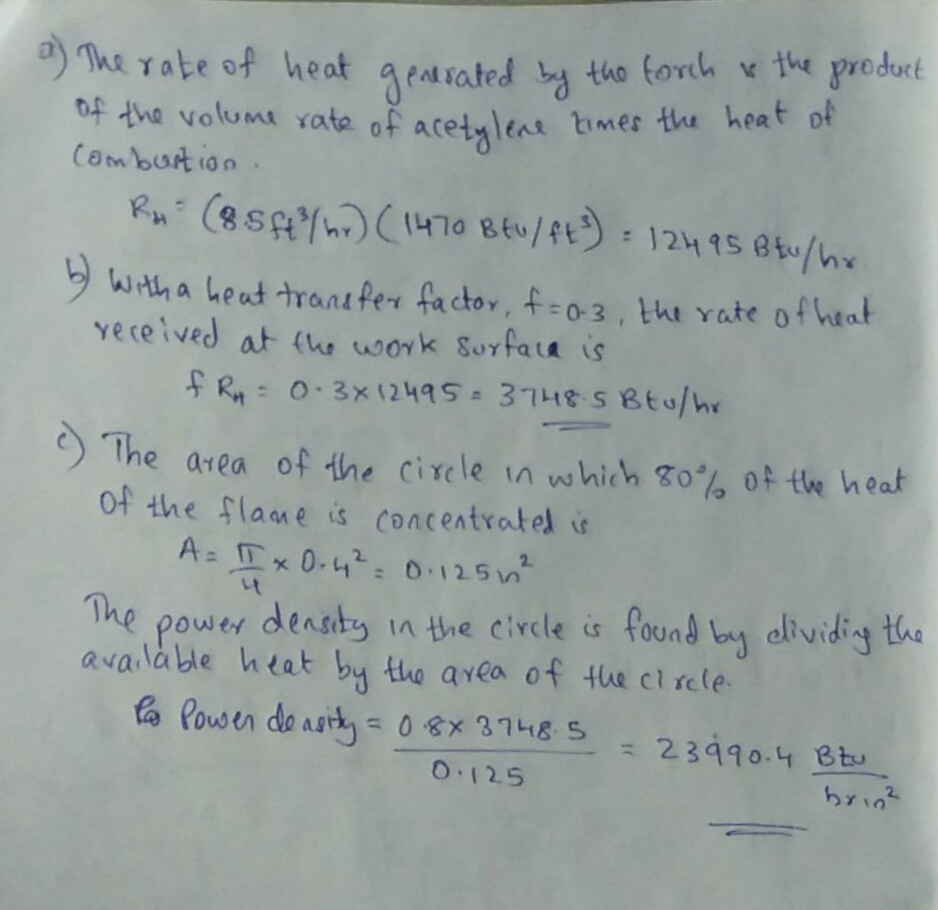 a) The rate of heat generated by the torch is the product
of the volume rate of acetylene times the heat of
combustion.
R_H = (8.5 ft³/hr) (1470 Btu/ft³) = 12495 Btu/hr
b) With a heat transfer factor, f=0.3, the rate of heat
received at the work surface is
f R_H = 0.3 × 12495 = 3748.5 Btu/hr
c) The area of the circle in which 80% of the heat
of the flame is concentrated is
A = π/4 × 0.4² = 0.125 in²
The power density in the circle is found by dividing the
available heat by the area of the circle.
Power density = 0.8 × 3748.5 / 0.125 = 23990.4 Btu / hr in²